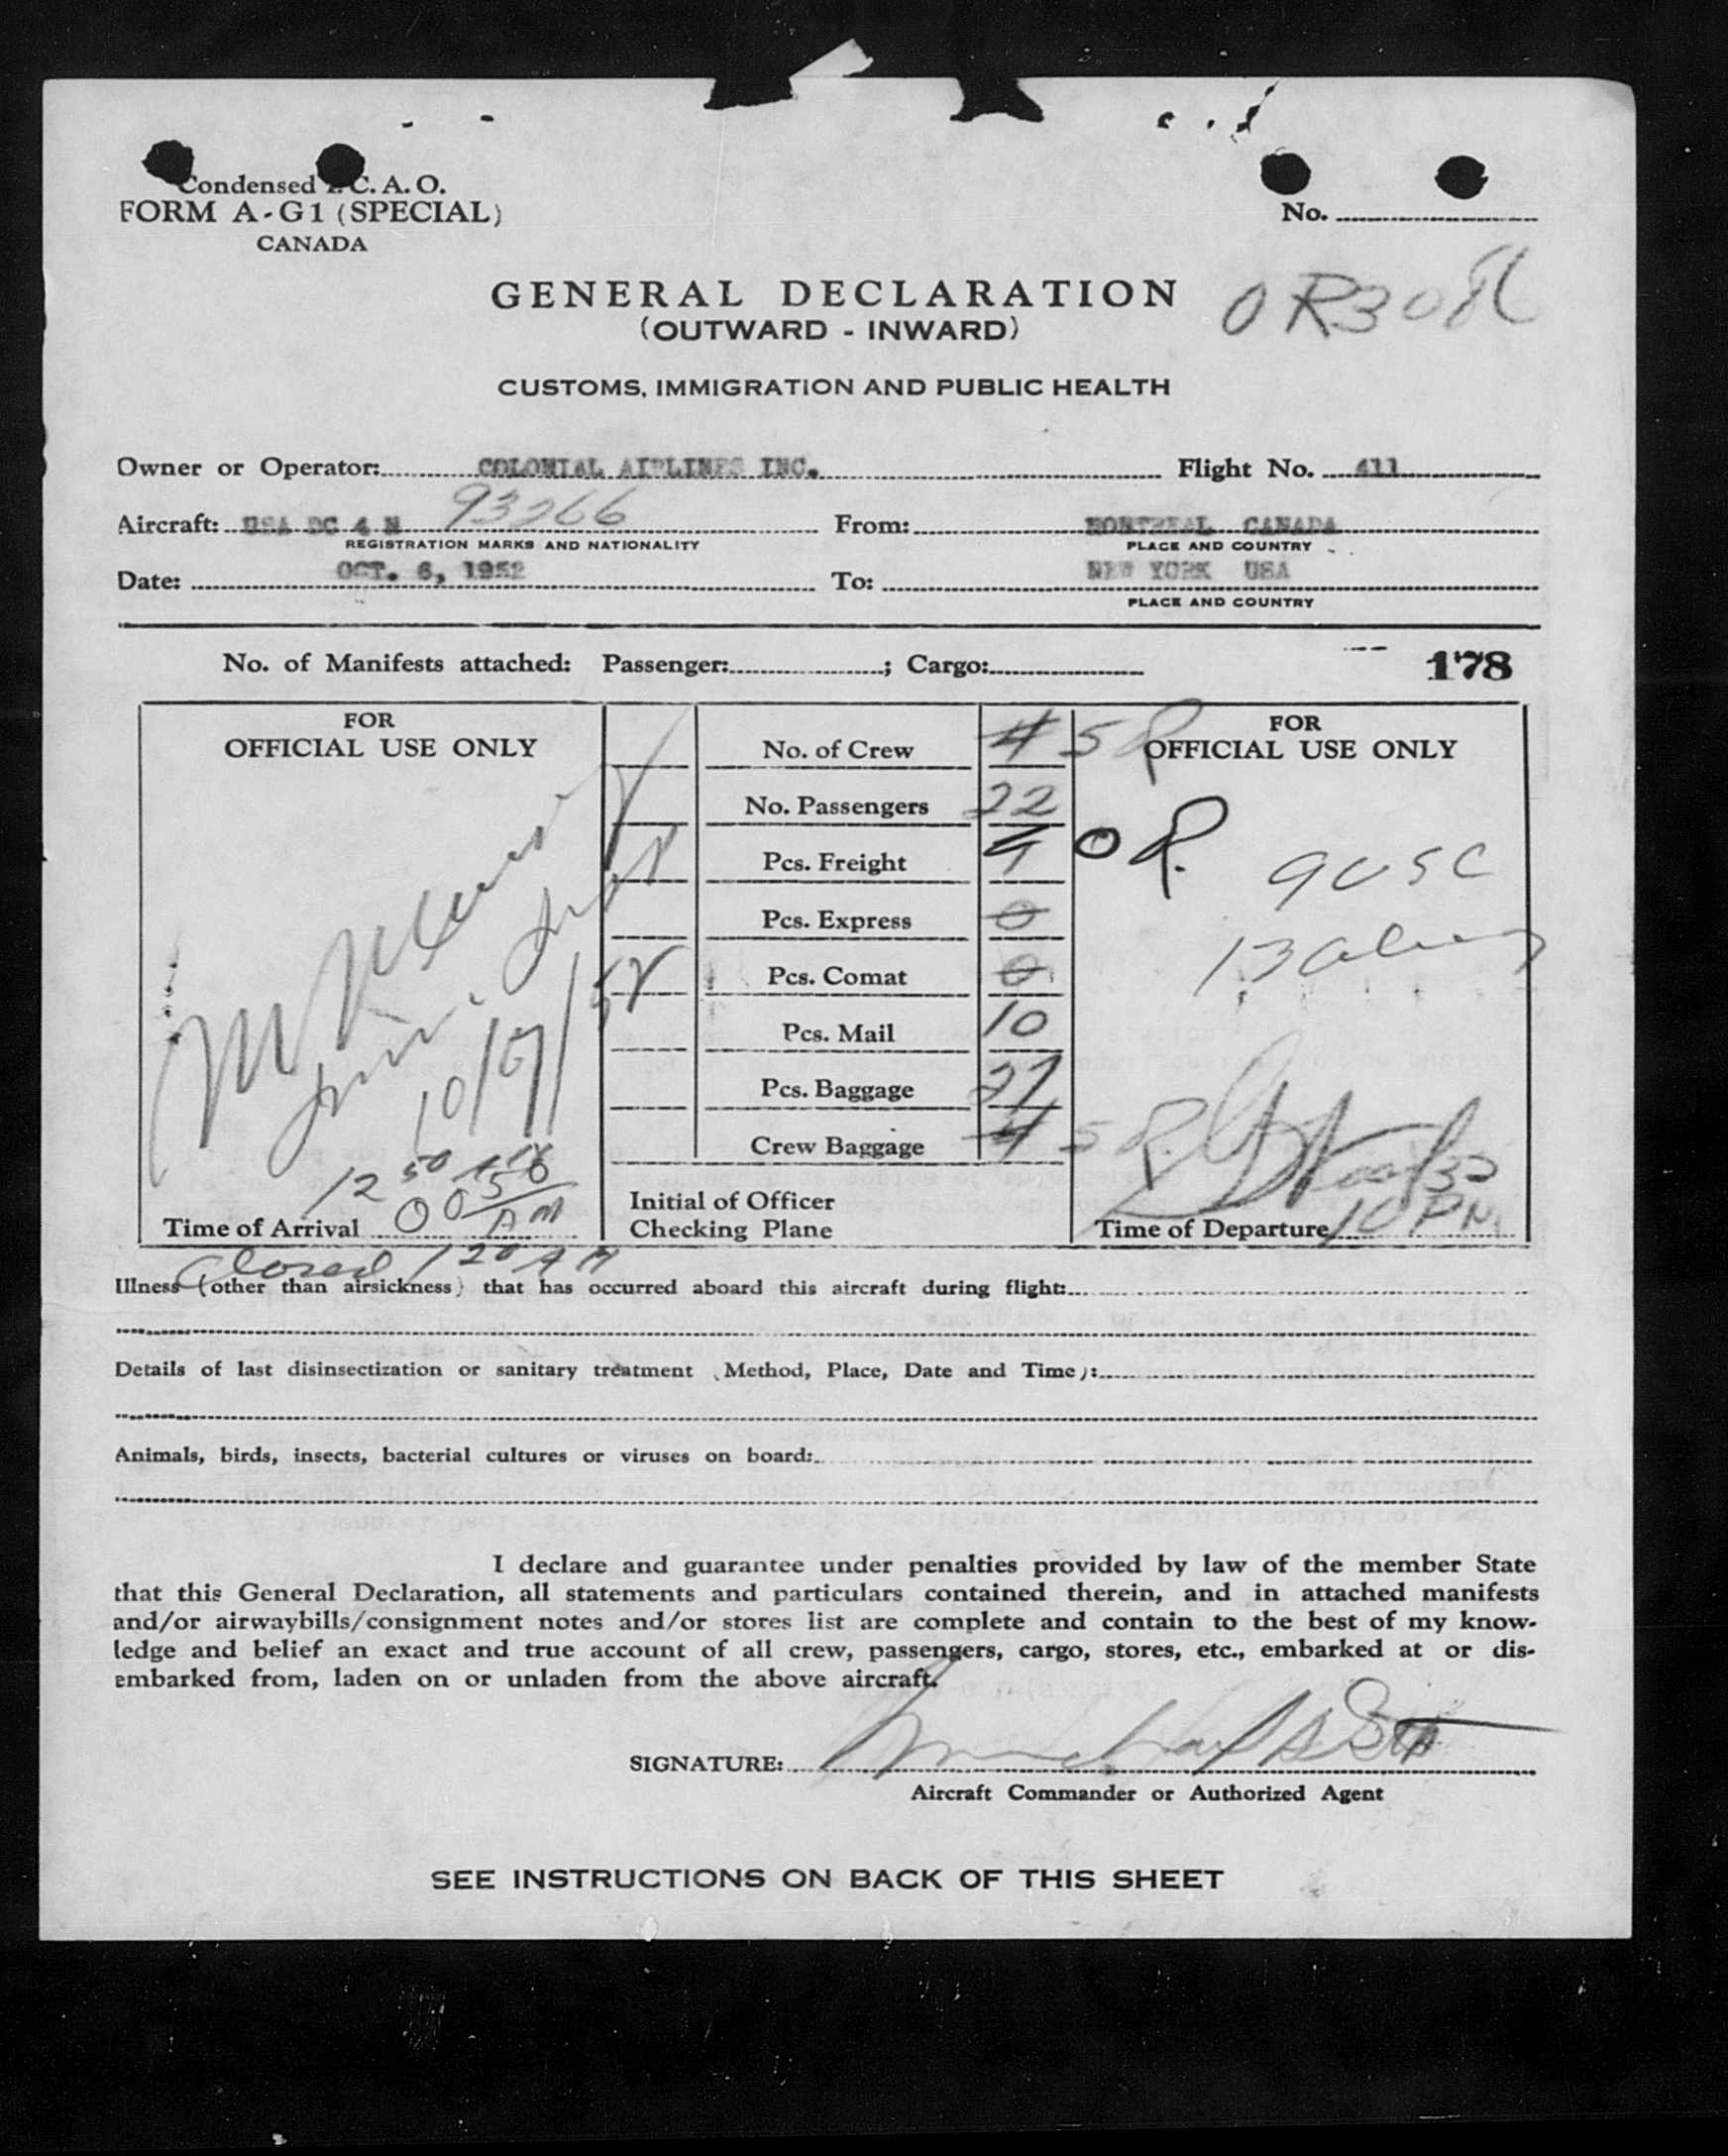 Condensed I. C. A. O.
FORM A-G1 (SPECIAL)
CANADA
No.
GENERAL DECLARATION
(OUTWARD - INWARD)
CUSTOMS, IMMIGRATION AND PUBLIC HEALTH
Owner or Operator: COLONIAL AIRLINES INC. Flight No. 411
Aircraft: USA DC 4 N 93266 From: MONTREAL CANADA
REGISTRATION MARKS AND NATIONALITY PLACE AND COUNTRY
Date: OCT. 6, 1952 To: NEW YORK USA
PLACE AND COUNTRY
No. of Manifests attached: Passenger: ; Cargo: 178
FOR
OFFICIAL USE ONLY
10/6/52
12 50 AM
0050
AM
Time of Arrival
closed 1 20 AM
No. of Crew 4 5 R
No. Passengers 22
Pcs. Freight O R.
Pcs. Express 0
Pcs. Comat 0
Pcs. Mail 10
Pcs. Baggage 27
Crew Baggage 4 5 R.
Initial of Officer
Checking Plane
FOR
OFFICIAL USE ONLY
9 USC
13 aliens
10 PM
Time of Departure
Illness (other than airsickness) that has occurred aboard this aircraft during flight:
Details of last disinsectization or sanitary treatment (Method, Place, Date and Time):
Animals, birds, insects, bacterial cultures or viruses on board:
I declare and guarantee under penalties provided by law of the member State
that this General Declaration, all statements and particulars contained therein, and in attached manifests
and/or airwaybills/consignment notes and/or stores list are complete and contain to the best of my know-
ledge and belief an exact and true account of all crew, passengers, cargo, stores, etc., embarked at or dis-
embarked from, laden on or unladen from the above aircraft.
SIGNATURE:
Aircraft Commander or Authorized Agent
SEE INSTRUCTIONS ON BACK OF THIS SHEET